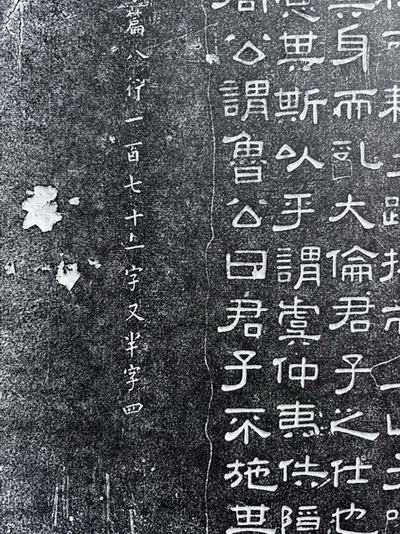 路
身而乱大倫君子之仕也
慮其斯以乎謂虞仲夷佚隱
周公謂魯公曰君子不施其
篇八行一百七十上字又半字四